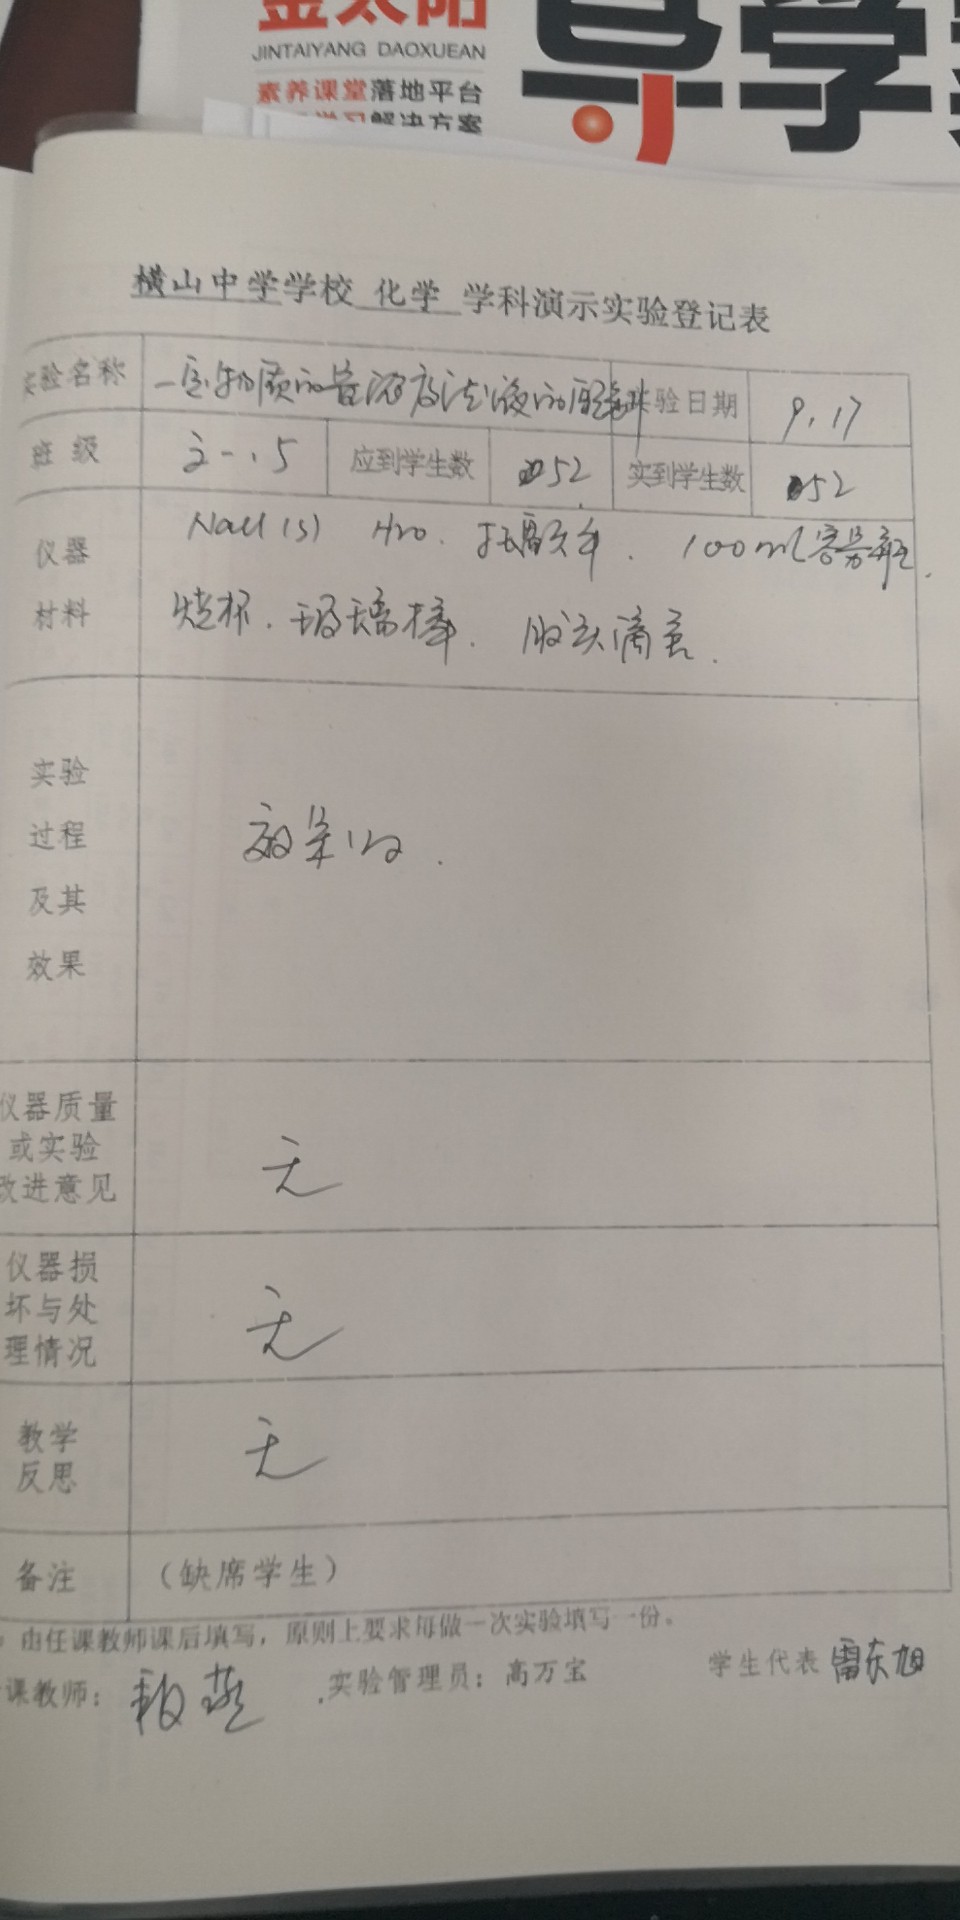 金太阳
JINTAIYANG DAOXUEAN
素养课堂落地平台
学习解决方案
导学
横山中学学校 化学 学科演示实验登记表
实验名称 一定物质的量浓度溶液的配制 实验日期 9.17
班级 5 应到学生数 52 实到学生数 52
仪器 NaCl(s) H2O. 托盘天平. 100ml容量瓶.
材料 烧杯. 玻璃棒. 胶头滴管.
实验
过程 效果
及其
效果
仪器质量
或实验 无
改进意见
仪器损
坏与处 无
理情况
教学 无
反思
备注 (缺席学生)
由任课教师课后填写，原则上要求每做一次实验填写一份。
课教师： 实验管理员：高万宝 学生代表 雷东旭